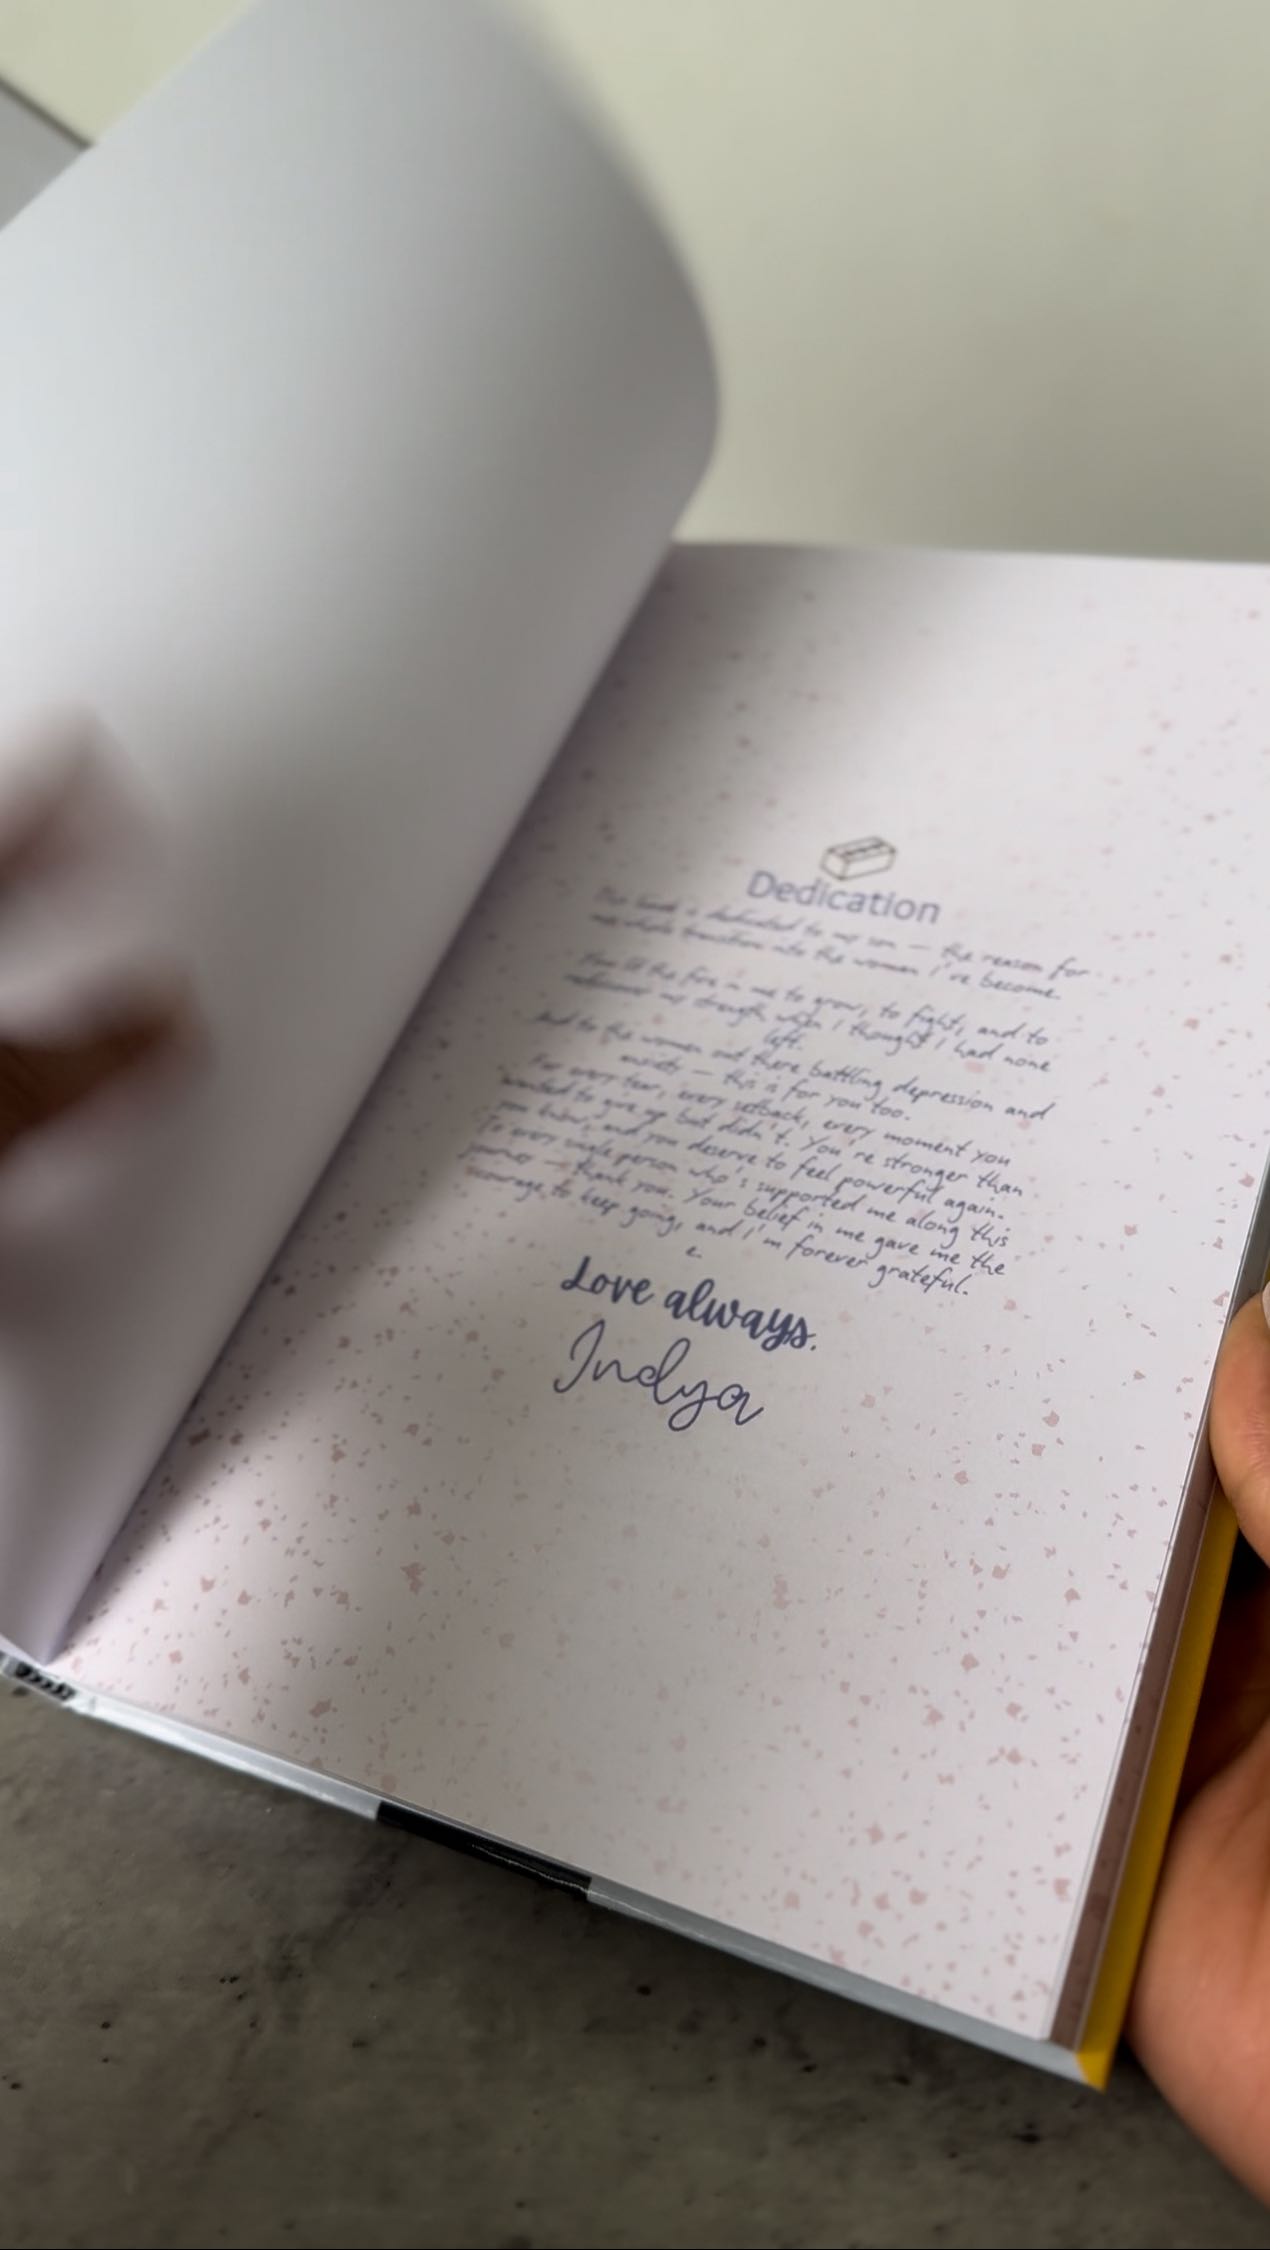 Dedication
This book is dedicated to my son — the reason for
my whole transition into the woman I've become.
You lit the fire in me to grow, to fight, and to
rediscover my strength when I thought I had none
left.
And to the women out there battling depression and
anxiety — this is for you too.
For every tear, every setback, every moment you
wanted to give up but didn't. You're stronger than
you know, and you deserve to feel powerful again.
To every single person who's supported me along this
journey — thank you. Your belief in me gave me the
courage to keep going, and I'm forever grateful.
e.
Love always.
Indya